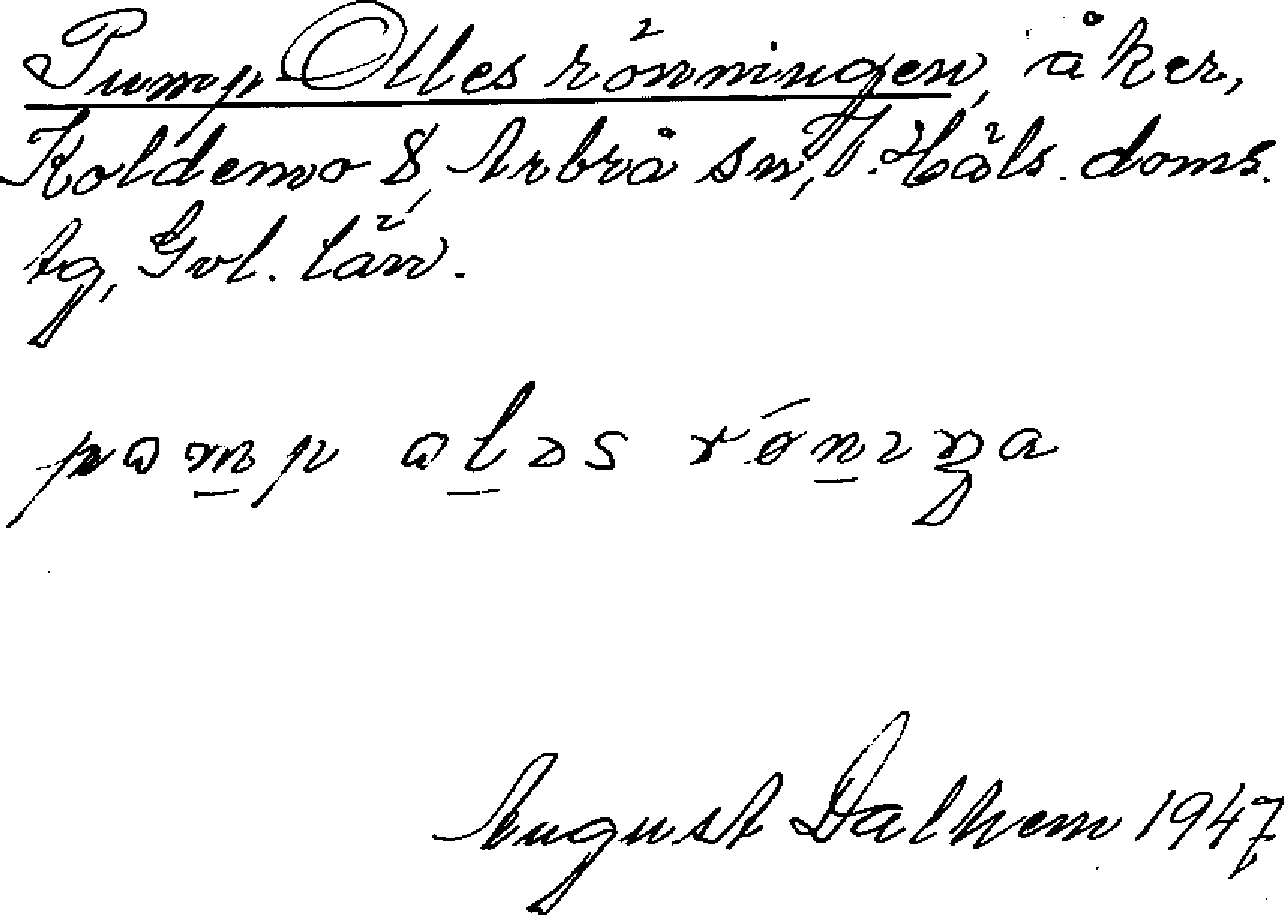 Pump-Olles rönningen, åker,
Koldemo 8, Arbrå sn, V. Häls. doms.
tg, Gvl. län.
August Dalhem 1947